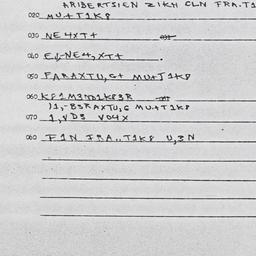 ARIBERTSIEN ZIKH CLN FRA.T1
020 MU+T1K8
030 NE4XT+
040 EJ-NE4,XT+ .
050 FARAXTU,G+ MU+T1K8
060 K81M3
11,-B3RAXTU,G MU+T1K8
070 1,VD3 VO4X
080 F1N FRA..T1K8 U,3N